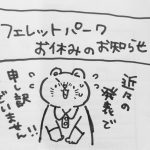 フェレットパーク
お休みのお知らせ
近々の
発表で
申し訳
ございません!!